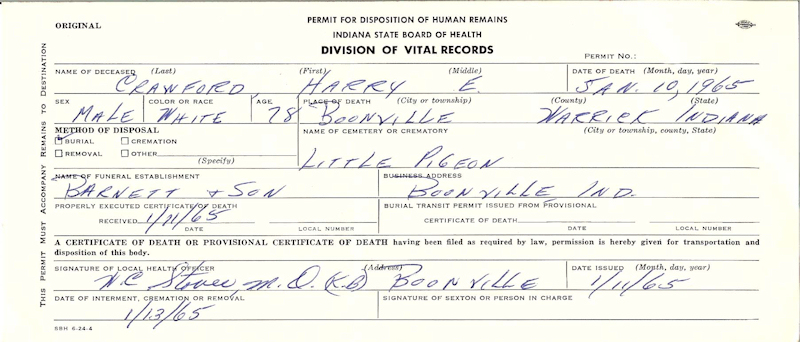 ORIGINAL
PERMIT FOR DISPOSITION OF HUMAN REMAINS
INDIANA STATE BOARD OF HEALTH
DIVISION OF VITAL RECORDS
PERMIT NO.:
THIS PERMIT MUST ACCOMPANY REMAINS TO DESTINATION
NAME OF DECEASED (Last) (First) (Middle) DATE OF DEATH (Month, day, year)
CRAWFORD HARRY E. JAN. 10, 1965
SEX COLOR OR RACE AGE PLACE OF DEATH (City or township) (County) (State)
MALE WHITE 78 BOONVILLE WARRICK INDIANA
METHOD OF DISPOSAL NAME OF CEMETERY OR CREMATORY (City or township, county, State)
BURIAL CREMATION
REMOVAL OTHER
(Specify)
LITTLE PIGEON
NAME OF FUNERAL ESTABLISHMENT BUSINESS ADDRESS
BARNETT + SON BOONVILLE IND.
PROPERLY EXECUTED CERTIFICATE OF DEATH BURIAL TRANSIT PERMIT ISSUED FROM PROVISIONAL
RECEIVED 1/11/65 CERTIFICATE OF DEATH
DATE LOCAL NUMBER DATE LOCAL NUMBER
A CERTIFICATE OF DEATH OR PROVISIONAL CERTIFICATE OF DEATH having been filed as required by law, permission is hereby given for transportation and
disposition of this body.
SIGNATURE OF LOCAL HEALTH OFFICER (Address) DATE ISSUED (Month, day, year)
WC Stover, M.D. (K.B) BOONVILLE 1/11/65
DATE OF INTERMENT, CREMATION OR REMOVAL SIGNATURE OF SEXTON OR PERSON IN CHARGE
1/13/65
SBH 6-24-4